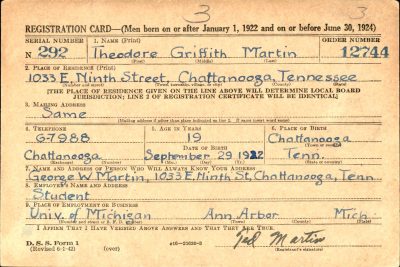 3
3
REGISTRATION CARD—(Men born on or after January 1, 1922 and on or before June 30, 1924)
SERIAL NUMBER 1. NAME (Print) ORDER NUMBER
N 292 Theodore Griffith Martin 12744
(First) (Middle) (Last)
2. PLACE OF RESIDENCE (Print)
1033 E. Ninth Street, Chattanooga, Tennessee
(Number and street) (Town, township, village, or city) (County) (State)
[THE PLACE OF RESIDENCE GIVEN ON THE LINE ABOVE WILL DETERMINE LOCAL BOARD
JURISDICTION; LINE 2 OF REGISTRATION CERTIFICATE WILL BE IDENTICAL]
3. MAILING ADDRESS
Same
[Mailing address if other than place indicated on line 2. If same insert word same]
4. TELEPHONE 5. AGE IN YEARS 6. PLACE OF BIRTH
6-7988 19 Chattanooga
DATE OF BIRTH (Town or county)
Chattanooga September 29 1922 Tenn.
(Exchange) (Number) (Mo.) (Day) (Yr.) (State or country)
7. NAME AND ADDRESS OF PERSON WHO WILL ALWAYS KNOW YOUR ADDRESS
George W. Martin, 1033 E. Ninth St., Chattanooga, Tenn
8. EMPLOYER'S NAME AND ADDRESS
Student
9. PLACE OF EMPLOYMENT OR BUSINESS
Univ. of Michigan Ann Arbor Mich
(Number and street or R. F. D. number) (Town) (County) (State)
I AFFIRM THAT I HAVE VERIFIED ABOVE ANSWERS AND THAT THEY ARE TRUE.
D. S. S. Form 1 Ted Martin
(Revised 6-1-42) (over) (Registrant's signature)